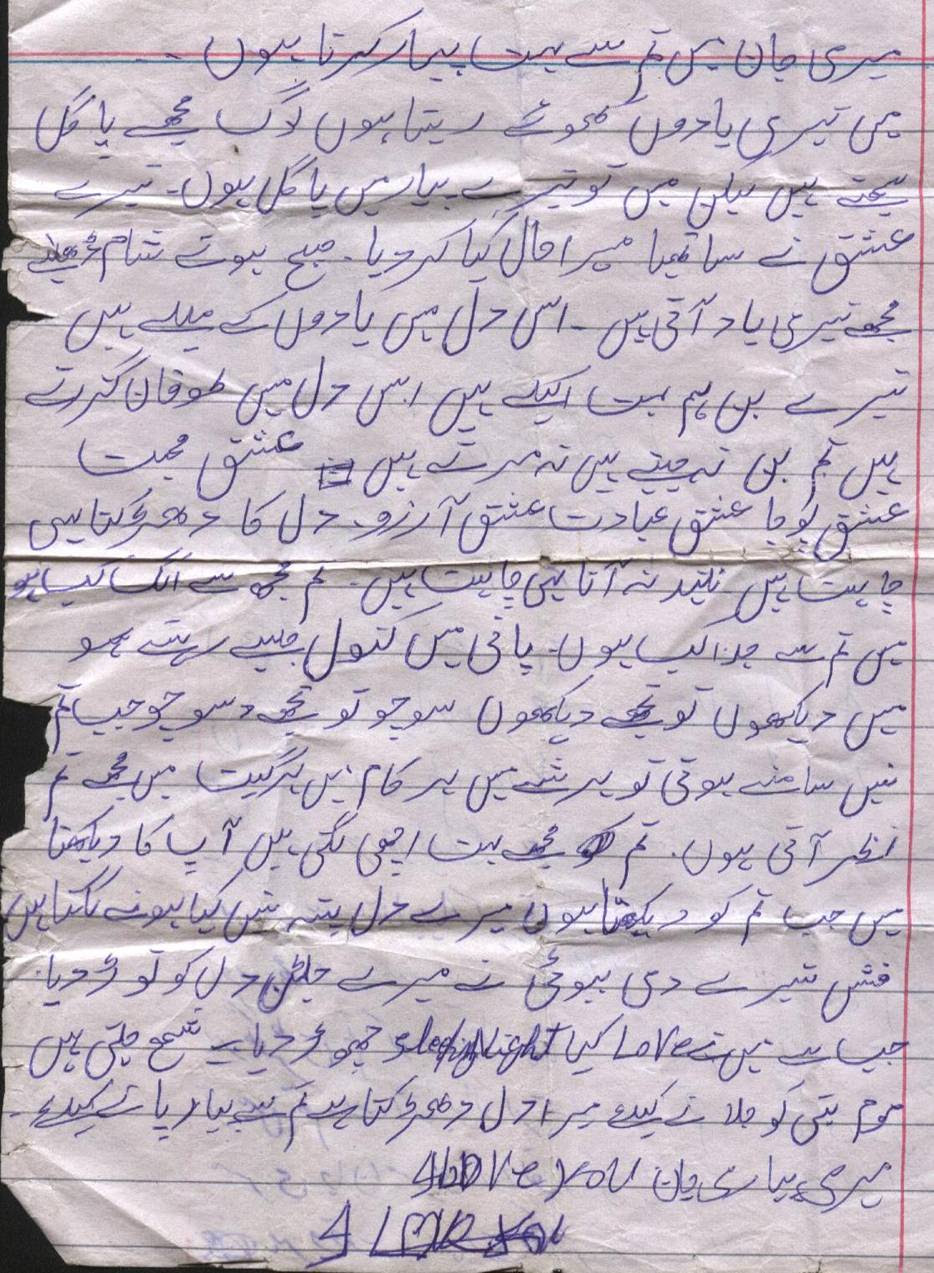 میری جان میں تم سے بہت پیار کرتا ہوں ۔ ۔
میں تیری یادوں کھوئے رہتا ہوں لوگ مجھے پاگل
سمجھتے ہیں لیکن میں تو تیرے پیار میں پاگل ہوں۔ تیرے
عشق نے ساتھیا میرا حال کیا کر دیا۔ صبح ہوتے شام ڈھلے
مجھے تیری یاد آتی ہیں ۔ اس دل میں یادوں کے میلے ہیں
تیرے بن ہم بہت اکیلے ہیں اس دل میں طوفان گزرتے
ہیں تم بن نہ جیتے ہیں نہ مرتے ہیں عشق محبت
عشق پوجا عشق عبادت عشق آرزو۔ دل کا دھڑکتا ہی
چاہت ہیں نیند نہ آنا ہی چاہت ہیں۔ تم مجھ سے الگ کب ہو
میں تم سے جدا کب ہوں۔ پانی میں کنول جیسے رہتے ہو
میں دیکھوں تو تجھے دیکھوں سوچو تو تجھے سوچو جب تم
نہیں سامنے ہوتی تو ہر شے میں ہر کام میں ہر گیت میں مجھے تم
نظر آتی ہوں۔ تم مجھے بہت اچھی لگتی ہیں آپ کا دیکھنا
میں جب تم کو دیکھتا ہوں میرے دل پتہ نہیں کیا ہونے لگتا ہیں
تیرے دی نے میرے دل کو توڑ دیا۔
جب سے میں نے Love کیا sleeping Night چھوڑ دیا ہے شمع جلتی ہیں
موم بتی کو جلانے کیلئے میرا دل دھڑکتا ہے تم سے پیار پانے کیلئے۔
میری پیاری جان I Love you
I Love you